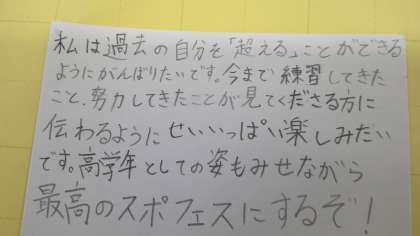 私は過去の自分を「超える」ことができる
ようにがんばりたいです。今まで練習してきた
こと、努力してきたことが見てくださる方に
伝わるようにせいいっぱい楽しみたい
です。高学年としての姿もみせながら
最高のスポフェスにするぞ!